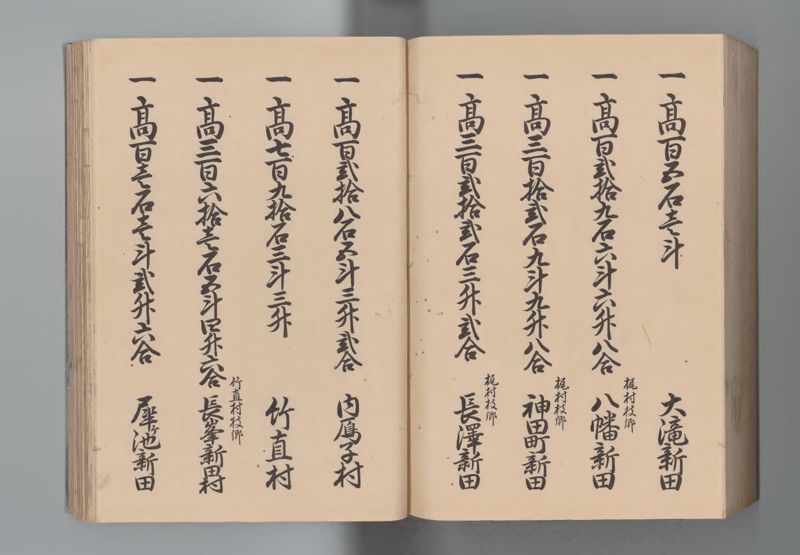 一 高百五石壱斗 大滝新田
一 高百弐拾九石六斗六升八合 梶村枝郷 八幡新田
一 高三百拾弐石九斗九升八合 梶村枝郷 神田町新田
一 高三百弐拾弐石三升弐合 梶村枝郷 長澤新田
一 高百弐拾八石五斗三升弐合 内鴈子村
一 高七百九拾石三斗三升 竹直村
一 高三百六拾壱石五斗四升六合 竹直村枝郷 長峯新田村
一 高百壱石壱斗弐升六合 犀池新田